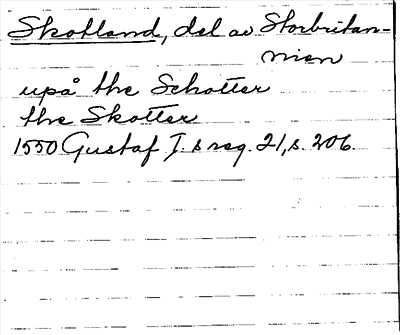 Skotland, del av Storbritan-
nien
upå the Schotter
the Skotter
1550 Gustaf I:s reg. 21, s. 206.